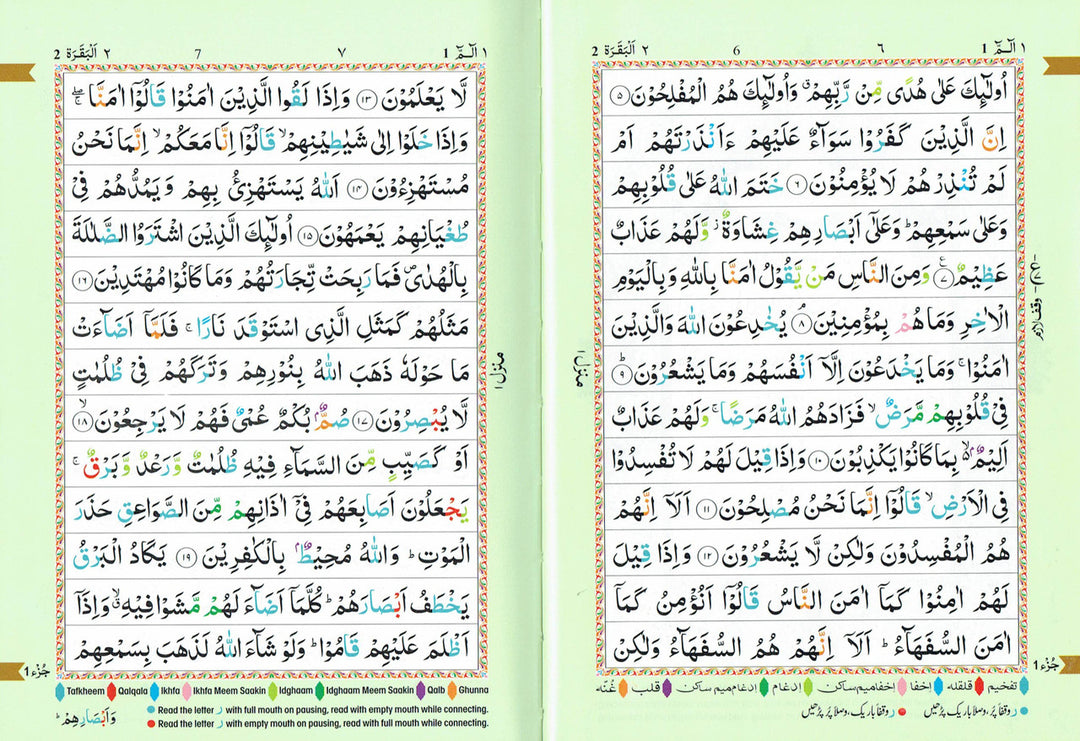 ١ الٓـمّٓ 1
٦
6
٢ اَلْبَقَرَة 2
اُولٰٓئِكَ عَلٰى هُدًى مِّنْ رَّبِّهِمْ ۙ وَاُولٰٓئِكَ هُمُ الْمُفْلِحُوْنَ ۝٥
اِنَّ الَّذِيْنَ كَفَرُوْا سَوَآءٌ عَلَيْهِمْ ءَاَنْذَرْتَهُمْ اَمْ
لَمْ تُنْذِرْهُمْ لَا يُؤْمِنُوْنَ ۝٦ خَتَمَ اللّٰهُ عَلٰى قُلُوْبِهِمْ
وَعَلٰى سَمْعِهِمْ ؕ وَعَلٰٓى اَبْصَارِهِمْ غِشَاوَةٌ ؗ وَّلَهُمْ عَذَابٌ
عَظِيْمٌ ۝٧ ع وَمِنَ النَّاسِ مَنْ يَّقُوْلُ اٰمَنَّا بِاللّٰهِ وَبِالْيَوْمِ
الْاٰخِرِ وَمَا هُمْ بِمُؤْمِنِيْنَ ۝٨ ۘ يُخٰدِعُوْنَ اللّٰهَ وَالَّذِيْنَ
اٰمَنُوْا ۚ وَمَا يَخْدَعُوْنَ اِلَّاۤ اَنْفُسَهُمْ وَمَا يَشْعُرُوْنَ ۝٩ ؕ
فِىْ قُلُوْبِهِمْ مَّرَضٌ ۙ فَزَادَهُمُ اللّٰهُ مَرَضًا ۚ وَلَهُمْ عَذَابٌ
اَلِيْمٌۢ ۙ بِمَا كَانُوْا يَكْذِبُوْنَ ۝١٠ وَاِذَا قِيْلَ لَهُمْ لَا تُفْسِدُوْا
فِى الْاَرْضِ ۙ قَالُوْۤا اِنَّمَا نَحْنُ مُصْلِحُوْنَ ۝١١ اَلَاۤ اِنَّهُمْ
هُمُ الْمُفْسِدُوْنَ وَلٰكِنْ لَّا يَشْعُرُوْنَ ۝١٢ وَاِذَا قِيْلَ
لَهُمْ اٰمِنُوْا كَمَاۤ اٰمَنَ النَّاسُ قَالُوْۤا اَنُؤْمِنُ كَمَاۤ
اٰمَنَ السُّفَهَآءُ ؕ اَلَاۤ اِنَّهُمْ هُمُ السُّفَهَآءُ وَلٰكِنْ
وقف لازم
منزل ١
جُزْء 1
تفخیم قلقلہ اخفا اخفا میم ساکن ادغام ادغام میم ساکن قلب غُنّہ
ر وقفاً پُر، وصلاً باریک پڑھیں ر وقفاً باریک، وصلاً پُر پڑھیں
١ الٓـمّٓ 1
٧
7
٢ اَلْبَقَرَة 2
لَّا يَعْلَمُوْنَ ۝١٣ وَاِذَا لَقُوا الَّذِيْنَ اٰمَنُوْا قَالُوْۤا اٰمَنَّا ۖۚ
وَاِذَا خَلَوْا اِلٰى شَيٰطِيْنِهِمْ ۙ قَالُوْۤا اِنَّا مَعَكُمْ ۙ اِنَّمَا نَحْنُ
مُسْتَهْزِءُوْنَ ۝١٤ اَللّٰهُ يَسْتَهْزِئُ بِهِمْ وَيَمُدُّهُمْ فِىْ
طُغْيَانِهِمْ يَعْمَهُوْنَ ۝١٥ اُولٰٓئِكَ الَّذِيْنَ اشْتَرَوُا الضَّلٰلَةَ
بِالْهُدٰى ۪ فَمَا رَبِحَتْ تِّجَارَتُهُمْ وَمَا كَانُوْا مُهْتَدِيْنَ ۝١٦
مَثَلُهُمْ كَمَثَلِ الَّذِى اسْتَوْقَدَ نَارًا ۚ فَلَمَّاۤ اَضَآءَتْ
مَا حَوْلَهٗ ذَهَبَ اللّٰهُ بِنُوْرِهِمْ وَتَرَكَهُمْ فِىْ ظُلُمٰتٍ
لَّا يُبْصِرُوْنَ ۝١٧ صُمٌّۢ بُكْمٌ عُمْىٌ فَهُمْ لَا يَرْجِعُوْنَ ۝١٨ ۙ
اَوْ كَصَيِّبٍ مِّنَ السَّمَآءِ فِيْهِ ظُلُمٰتٌ وَّرَعْدٌ وَّبَرْقٌ ۚ
يَجْعَلُوْنَ اَصَابِعَهُمْ فِىْۤ اٰذَانِهِمْ مِّنَ الصَّوَاعِقِ حَذَرَ
الْمَوْتِ ؕ وَاللّٰهُ مُحِيْطٌۢ بِالْكٰفِرِيْنَ ۝١٩ يَكَادُ الْبَرْقُ
يَخْطَفُ اَبْصَارَهُمْ ؕ كُلَّمَاۤ اَضَآءَ لَهُمْ مَّشَوْا فِيْهِ ۙ وَاِذَاۤ
اَظْلَمَ عَلَيْهِمْ قَامُوْا ؕ وَلَوْ شَآءَ اللّٰهُ لَذَهَبَ بِسَمْعِهِمْ
منزل ١
جُزْء 1
Tafkheem Qalqala Ikhfa Ikhfa Meem Saakin Idghaam Idghaam Meem Saakin Qalb Ghunna
Read the letter ر with full mouth on pausing, read with empty mouth while connecting.
Read the letter ر with empty mouth on pausing, read with full mouth while connecting.
وَاَبْصَارِهِمْ ؕ